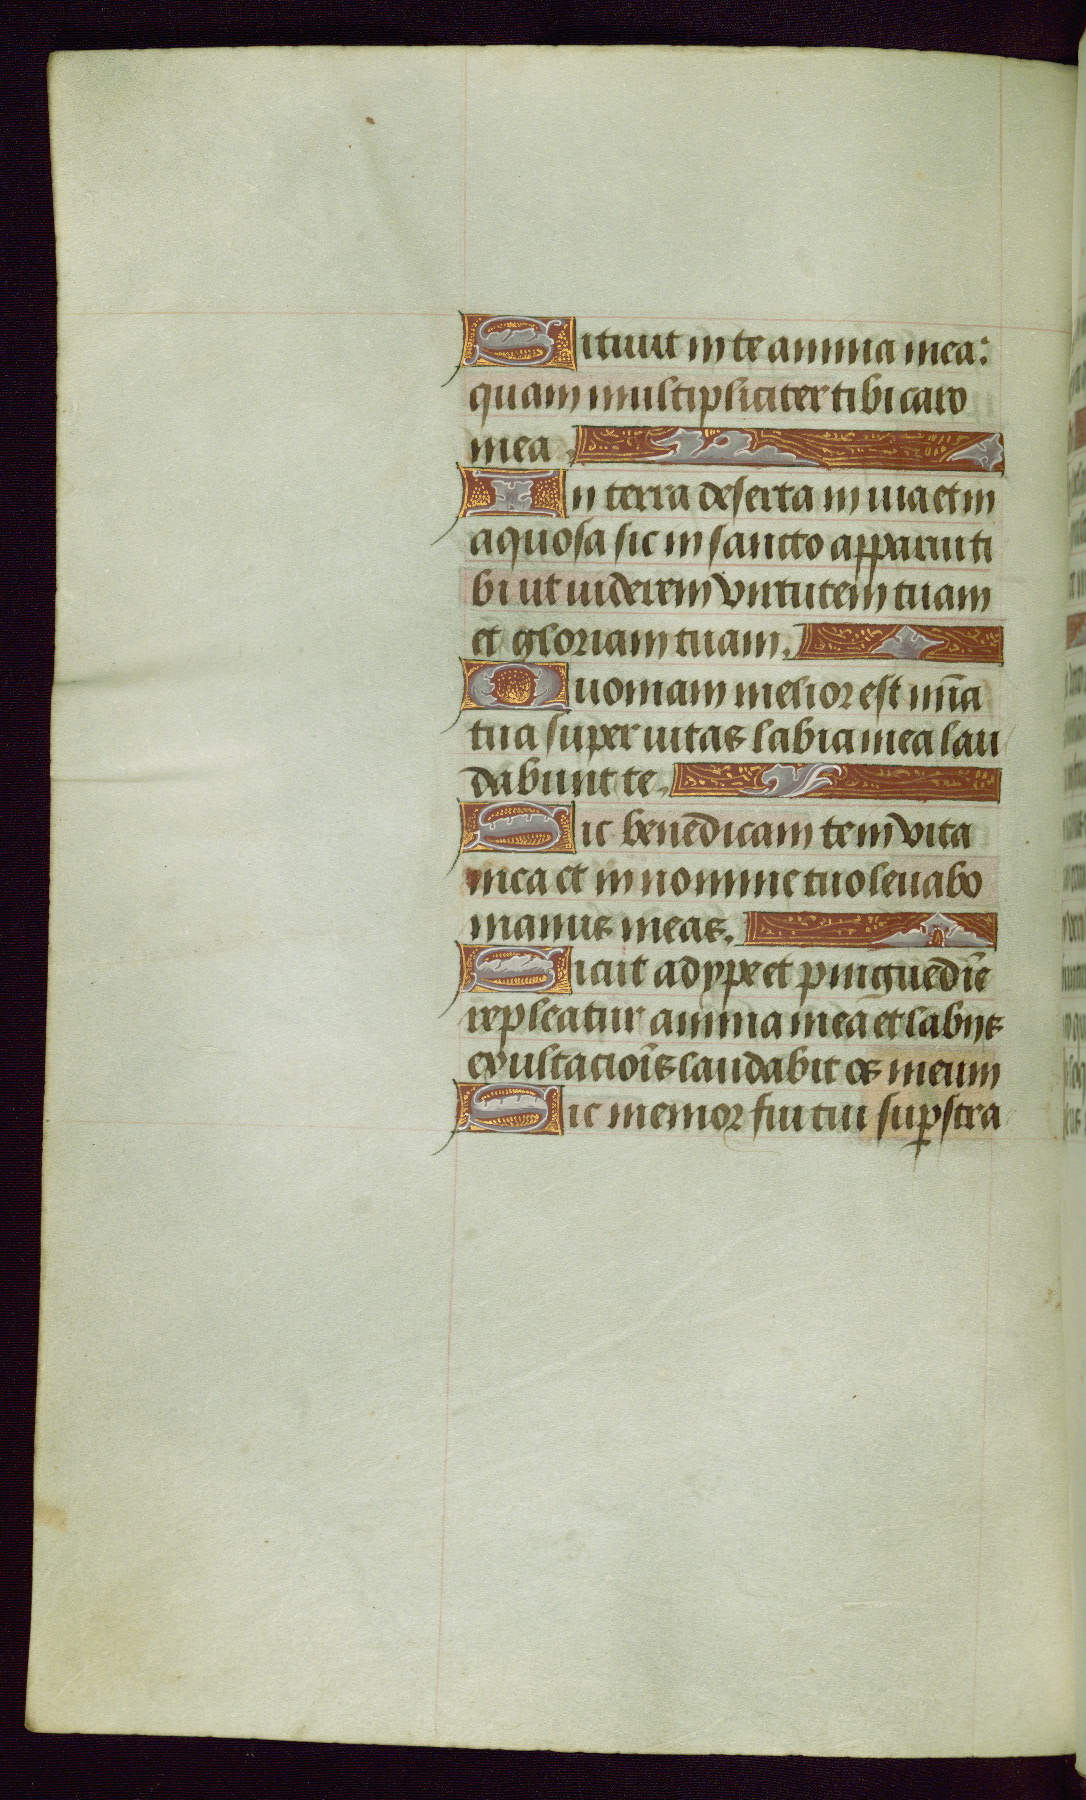 Sitiuit in te anima mea:
quam multipliciter tibi caro
mea.
In terra deserta in uia et in
aquosa sic in sancto apparui ti
bi ut uiderem virtutem tuam
et gloriam tuam.
Quoniam melior est mīa
tua super uitas labia mea lau
dabunt te.
Sic benedicam te in vita
mea et in nomine tuo leuabo
manus meas.
Sicut adype et pinguedīe
repleatur anima mea et labijs
exultacioīs laudabit os meum
Sic memor fui tui sup̱ stra